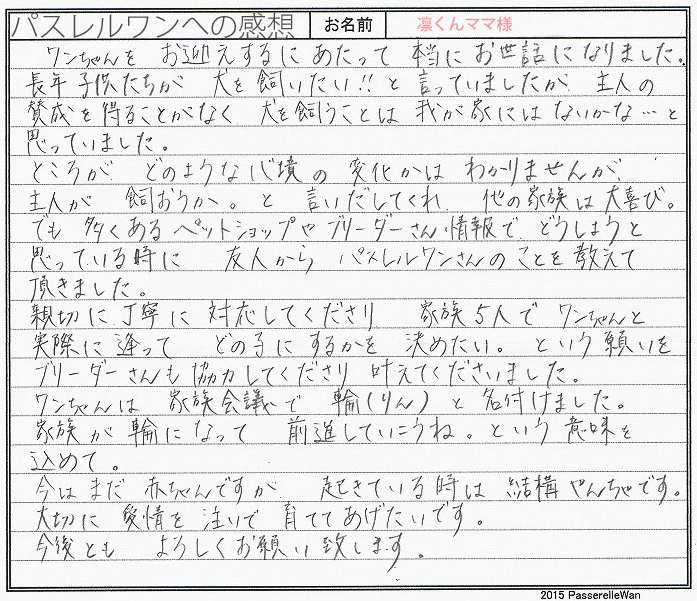 パスレルワンへの感想 お名前 凛くんママ様
ワンちゃんを お迎えするにあたって 本当にお世話になりました。
長年子供たちが 犬を飼いたい!!と言っていましたが 主人の
賛成を得ることがなく 犬を飼うことは 我が家にはないかな…と
思っていました。
ところが どのような心境の変化かは わかりませんが、
主人が 飼おうか。と 言いだしてくれ、他の家族は大喜び。
でも 多くあるペットショップやブリーダーさん情報で、どうしようと
思っている時に 友人から パスレルワンさんのことを教えて
頂きました。
親切に丁寧に対応してくださり 家族5人で ワンちゃんと
実際に逢って どの子にするかを 決めたい。という願いを
ブリーダーさんも協力してくださり 叶えてくださいました。
ワンちゃんは 家族会議で 輪(りん)と名付けました。
家族が輪になって 前進していこうね。という意味を
込めて。
今はまだ赤ちゃんですが 起きている時は 結構やんちゃです。
大切に愛情を注いで育ててあげたいです。
今後とも よろしくお願い致します。
2015 PasserelleWan